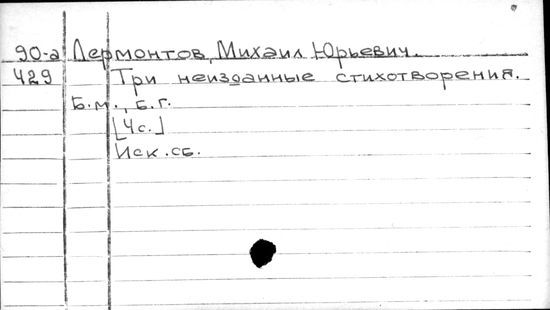 90-а Лермонтов, Михаил Юрьевич.
429 Три неизданные стихотворения.
Б.м., б.г.
[4с.]
Иск.сб.